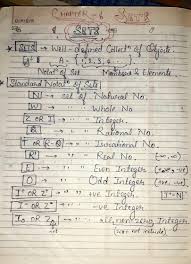 CHAPTER - 6 SETS
SETS
SETS → Well-defined Collectⁿ of Objects.
A = {1, 2, 3, 4 }
Notatⁿ of Set Members & Elements
Standard Notatⁿ of Sets
N → set of Natural No.
W → " " Whole No
Z OR I → " " Integer.
Q → " " Rational No.
T OR R-Q → " " Irrational No.
R → " " Real No. (-∞, ∞)
E → " " Even Integers
O → " " Odd Integers
I⁺ OR Z⁺ → " " +ve Integer. I⁺=N
I⁻ OR Z⁻ → " " -ve Integer.
I₀ OR Z₀ → " " all non zero Integers
(0 not include)